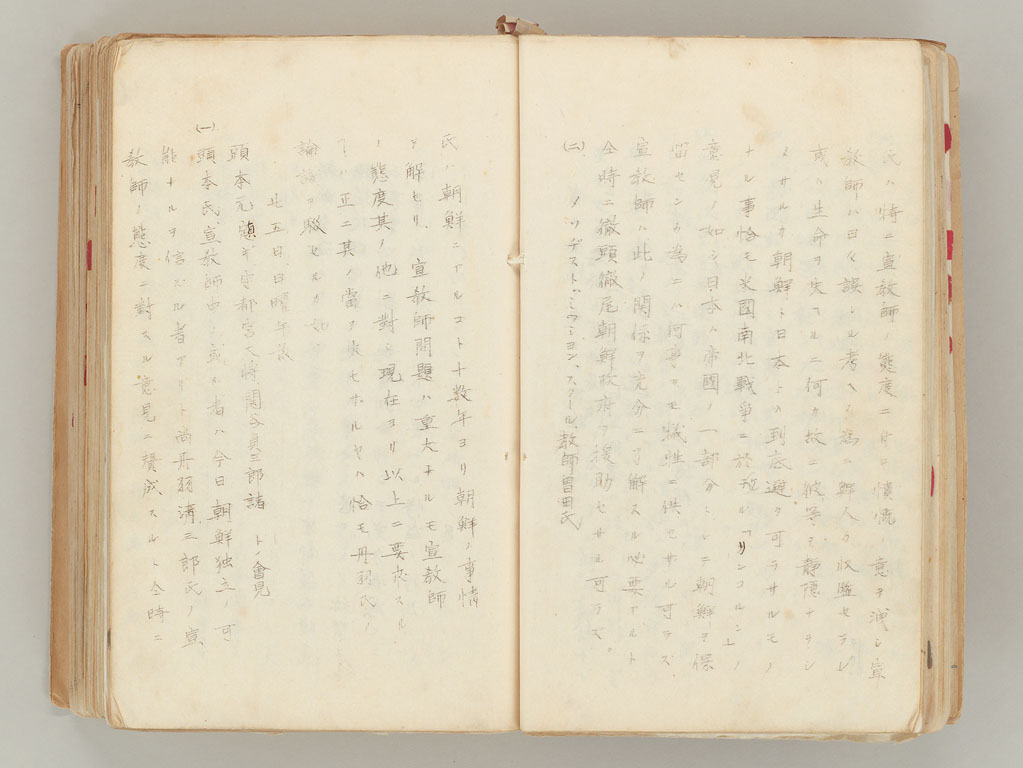 氏ハ特ニ宣教師ノ態度ニ付キ憤慨ノ意ヲ洩シ宣
教師ハ曰ク誤レル考ヘノ為ニ鮮人カ収監セラレ
或ハ生命ヲ失ヘルニ何カ故ニ彼等ヲ静隠ナラシ
メサルカ朝鮮ト日本トハ到底避ク可ラサルモノ
ナル事恰モ米国南北戦争ニ於ル「リンコルン」ノ
意見ノ如シ日本ハ帝國ノ一部分トシテ朝鮮ヲ保
留センカ為ニハ何事ヲモ犠牲ニ供セサル可ラズ
宣教師ハ此ノ関係ヲ充分ニ了解スル必要アルト
仝時ニ徹頭徹尾朝鮮政府ヲ援助セサル可ラズ。
(二)メソヂストミツシヨン、スクール教師曽田氏
氏ハ朝鮮ニアルコト十数年ヨリ朝鮮ノ事情
ヲ解セリ、宣教師問題ハ重大ナルモ宣教師
ノ態度其ノ他ニ対シ現在ヨリ以上ニ要求スル
ハ正ニ其ノ當ヲ失セサルヤハ恰モ丹羽氏ノ
論議ヲ駁セルカ如
廿五日日曜午後
頭本元 守都宮大将関谷貞三郎諸 トノ會見
(一)頭本氏、宣教師中ノ或ル者ハ今日朝鮮独立ノ可
能ナルヲ信スル者アリト尚丹羽清三郎氏ノ宣
教師ノ態度ニ對スル意見ニ賛成スルト仝時ニ